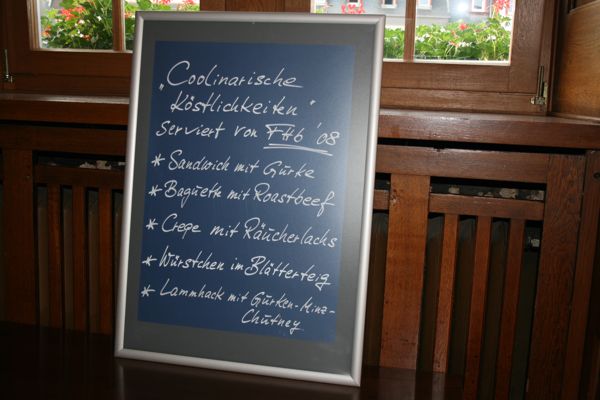 „Coolinarische
Köstlichkeiten"
Serviert von FHb '08
* Sandwich mit Gurke
* Baguette mit Roastbeef
* Crepe mit Räucherlachs
* Würstchen im Blätterteig
* Lammhack mit Gurken-Minz-
Chutney